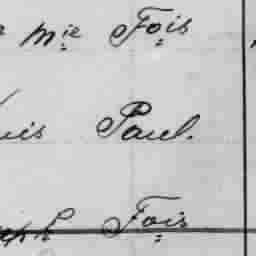 Mie Fois
uis Paul.
ph Fois